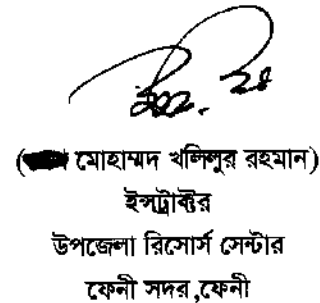 ( মোহাম্মদ খলিলুর রহমান)
ইন্সট্রাক্টর
উপজেলা রিসোর্স সেন্টার
ফেনী সদর ,ফেনী